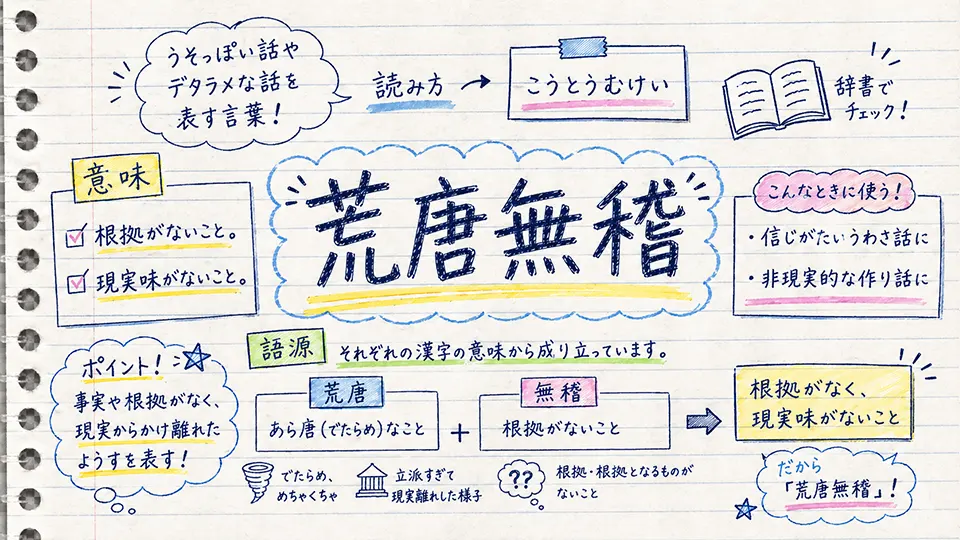 うそっぽい話や
デタラメな話を
表す言葉！
読み方
こうとうむけい
辞書で
チェック！
意味
根拠がないこと。
現実味がないこと。
荒唐無稽
こんなときに使う！
・信じがたいうわさ話に
・非現実的な作り話に
ポイント！
事実や根拠がなく、
現実からかけ離れた
ようすを表す！
語源
それぞれの漢字の意味から成り立っています。
荒唐
あら唐（でたらめ）なこと
+
無稽
根拠がないこと
でたらめ、
めちゃくちゃ
立派すぎて
現実離れした様子
??
根拠・根拠となるものが
ないこと
根拠がなく、
現実味がないこと
だから
「荒唐無稽」！